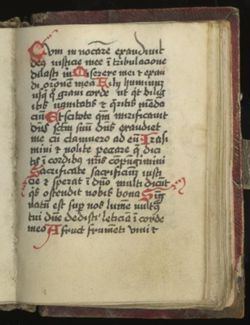 Cum invocarem exaudivit
deus iusticie mee i tribulacione
dilasti m Miserere mei et exau
di orone mea Filii hominu
usq q gravi corde ut qd dilig
itis vanitate et qritis menda
ciu Et scitote qm mirificavit
dns sctm suu dns exaudiet
me cu clamavero ad eu Iras
mini et nolite peccare q dici
tis i cordibz vris copugimini
Sacrificate sacrificiu iusti
cie et sperate i dno multi dicut
qs ostendit nobis bona Sig
natu est sup nos lume vultus
tui dne dedisti leticia i corde
meo A fructu frumeti vini et